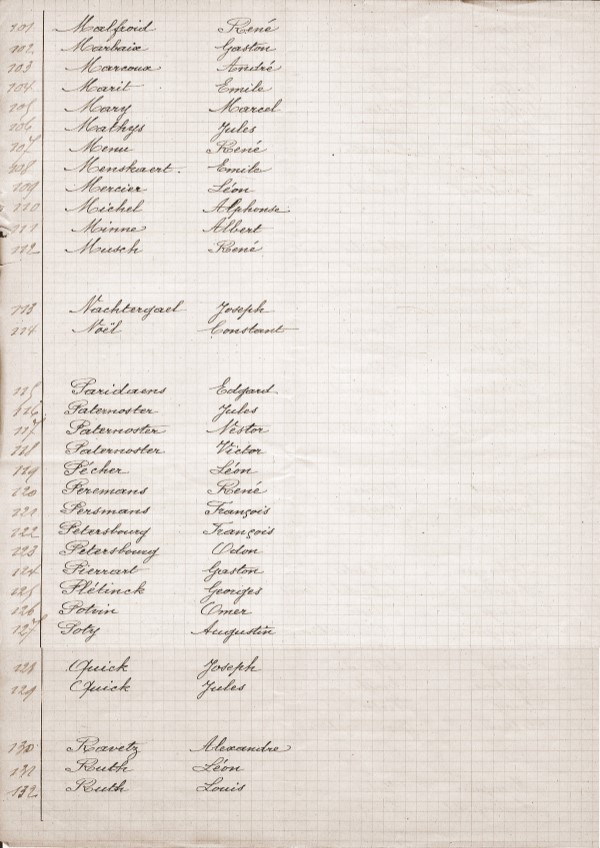 101 Malfroid René
102 Marbaix Gaston
103 Marcoux André
104 Marit Emile
105 Mary Marcel
106 Mathys Jules
107 Menu René
108 Menskaert. Emile
109 Mercier Léon
110 Michel Alphonse
111 Minne Albert
112 Musch René
113 Nachtergael Joseph
114 Noël Constant
115 Paridaens Edgard
116 Paternoster Jules
117 Paternoster Nestor
118 Paternoster Victor
119 Pécher Léon
120 Peremans René
121 Persmans François
122 Petersbourg François
123 Petersbourg Odon
124 Pierrart Gaston
125 Plétinck Georges
126 Potvin Omer
127 Poty Augustin
128 Quick Joseph
129 Quick Jules
130 Ravetz Alexandre
131 Ruth Léon
132 Ruth Louis